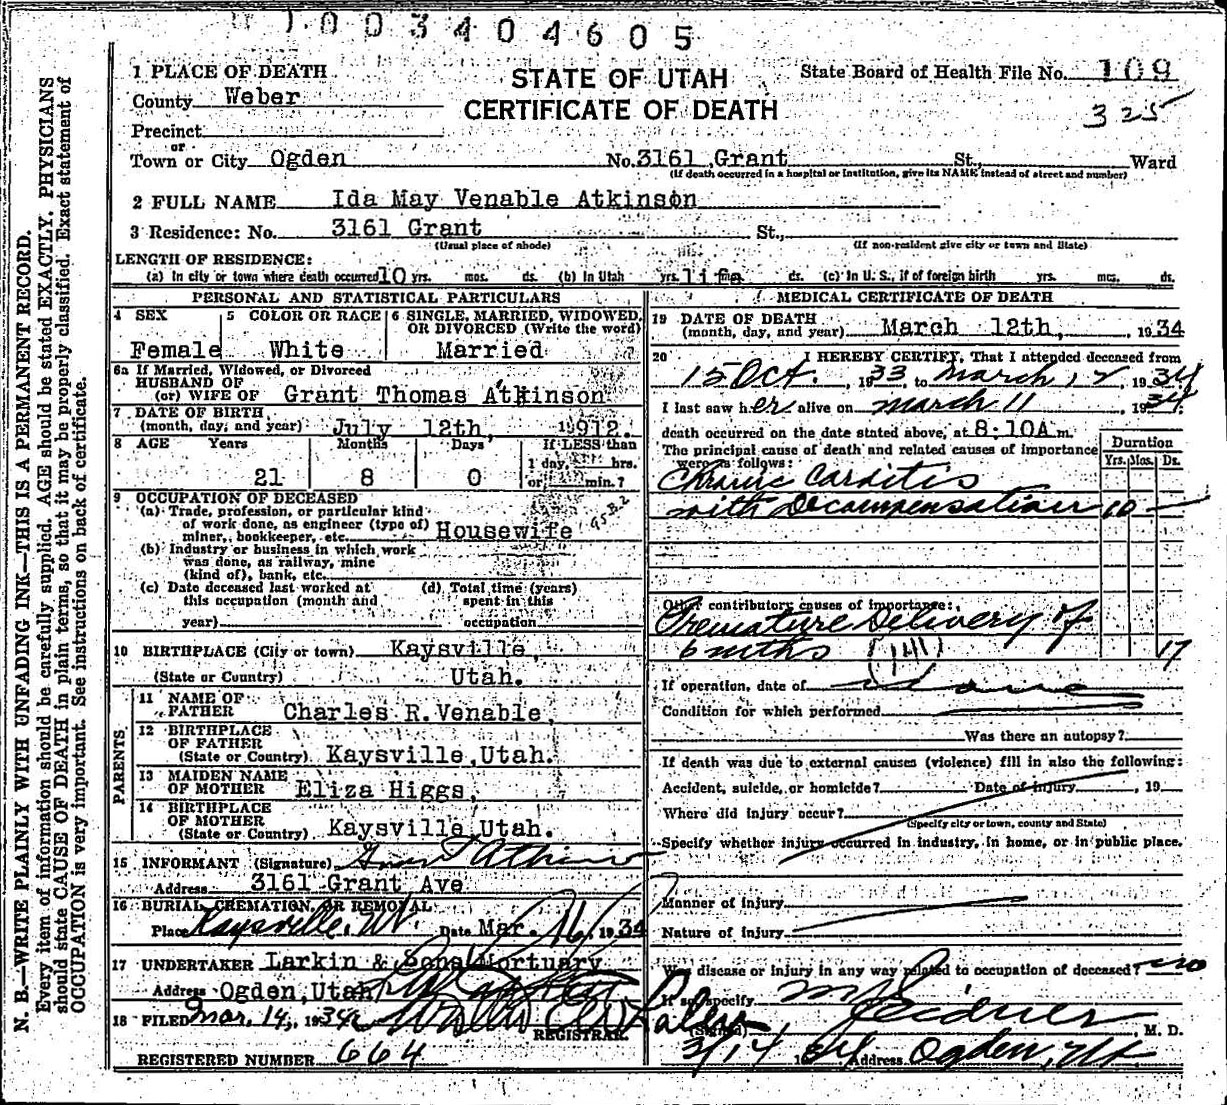 1003404605
1 PLACE OF DEATH
STATE OF UTAH
CERTIFICATE OF DEATH
State Board of Health File No. 109
325
County Weber
Precinct
or
Town or City Ogden No. 3161 Grant St., Ward
(If death occurred in a hospital or institution, give its NAME instead of street and number)
2 FULL NAME Ida May Venable Atkinson
3 Residence: No. 3161 Grant St.,
(Usual place of abode) (If non-resident give city or town and State)
LENGTH OF RESIDENCE:
(a) In city or town where death occurred 10 yrs. mos. ds. (b) In Utah yrs. life ds. (c) In U. S., if of foreign birth yrs. mos. ds.
PERSONAL AND STATISTICAL PARTICULARS
4 SEX 5 COLOR OR RACE 6 SINGLE, MARRIED, WIDOWED, OR DIVORCED (Write the word)
Female White Married
6a If Married, Widowed, or Divorced
HUSBAND OF
(or) WIFE OF Grant Thomas Atkinson
7 DATE OF BIRTH
(month, day, and year) July 12th, 1912.
8 AGE Years Months Days If LESS than
1 day, hrs.
21 8 0 or min.?
9 OCCUPATION OF DECEASED
(a) Trade, profession, or particular kind
of work done, as engineer (type of)
miner, bookkeeper, etc. Housewife 95B2
(b) Industry or business in which work
was done, as railway, mine
(kind of), bank, etc.
(c) Date deceased last worked at
this occupation (month and
year)
(d) Total time (years)
spent in this
occupation
10 BIRTHPLACE (City or town) Kaysville,
(State or Country) Utah.
PARENTS
11 NAME OF
FATHER Charles R. Venable,
12 BIRTHPLACE
OF FATHER
(State or Country) Kaysville, Utah.
13 MAIDEN NAME
OF MOTHER Eliza Higgs,
14 BIRTHPLACE
OF MOTHER
(State or Country) Kaysville, Utah.
15 INFORMANT (Signature) Grant T Atkinson
Address 3161 Grant Ave
16 BURIAL, CREMATION, OR REMOVAL
Place Kaysville, Ut. Date Mar. 16, 1934
17 UNDERTAKER Larkin & Sons Mortuary
Address Ogden, Utah
18 FILED Mar. 14, 1934
REGISTRAR.
REGISTERED NUMBER 664
MEDICAL CERTIFICATE OF DEATH
19 DATE OF DEATH
(month, day, and year) March 12th, 1934
20 I HEREBY CERTIFY, That I attended deceased from
15 Oct., 1933, to March 12 1934
I last saw her alive on March 11, 1934.
death occurred on the date stated above, at 8:10A m.
The principal cause of death and related causes of importance
were as follows:
Duration
Yrs. Mos. Ds.
Chronic Carditis
with Decompensation 10 —
Other contributory causes of importance:
Premature Delivery of
6 months (141) 17
If operation, date of None
Condition for which performed
Was there an autopsy?
If death was due to external causes (violence) fill in also the following:
Accident, suicide, or homicide? Date of injury , 19
Where did injury occur?
(Specify city or town, county and State)
Specify whether injury occurred in industry, in home, or in public place.
Manner of injury
Nature of injury
Was disease or injury in any way related to occupation of deceased? no
If so, specify
(Signed) Seidner, M. D.
3/14 1934 Address Ogden, Ut.
N. B.—WRITE PLAINLY WITH UNFADING INK—THIS IS A PERMANENT RECORD.
Every item of information should be carefully supplied. AGE should be stated EXACTLY. PHYSICIANS
should state CAUSE OF DEATH in plain terms, so that it may be properly classified. Exact statement of
OCCUPATION is very important. See instructions on back of certificate.